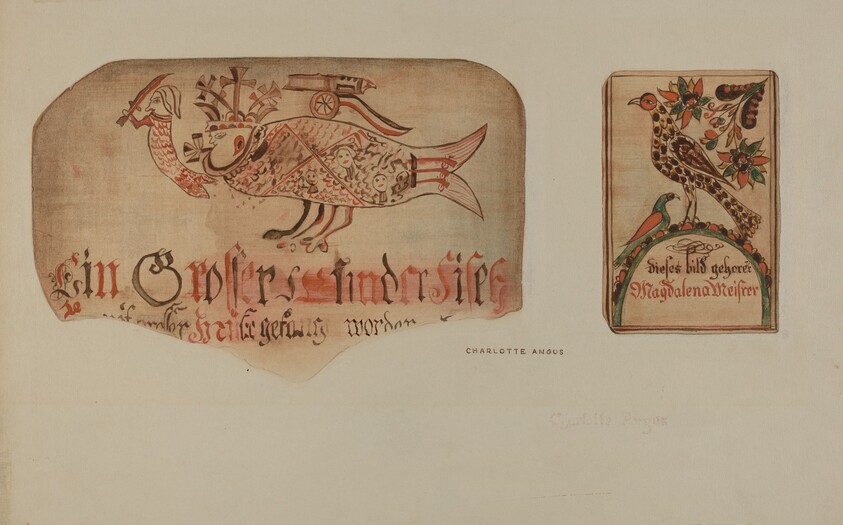 Ein Grosser finder Fisch
gefang worden
CHARLOTTE ANGUS
dieses bild gehoret
Magdalena Meister
Charlotte Angus